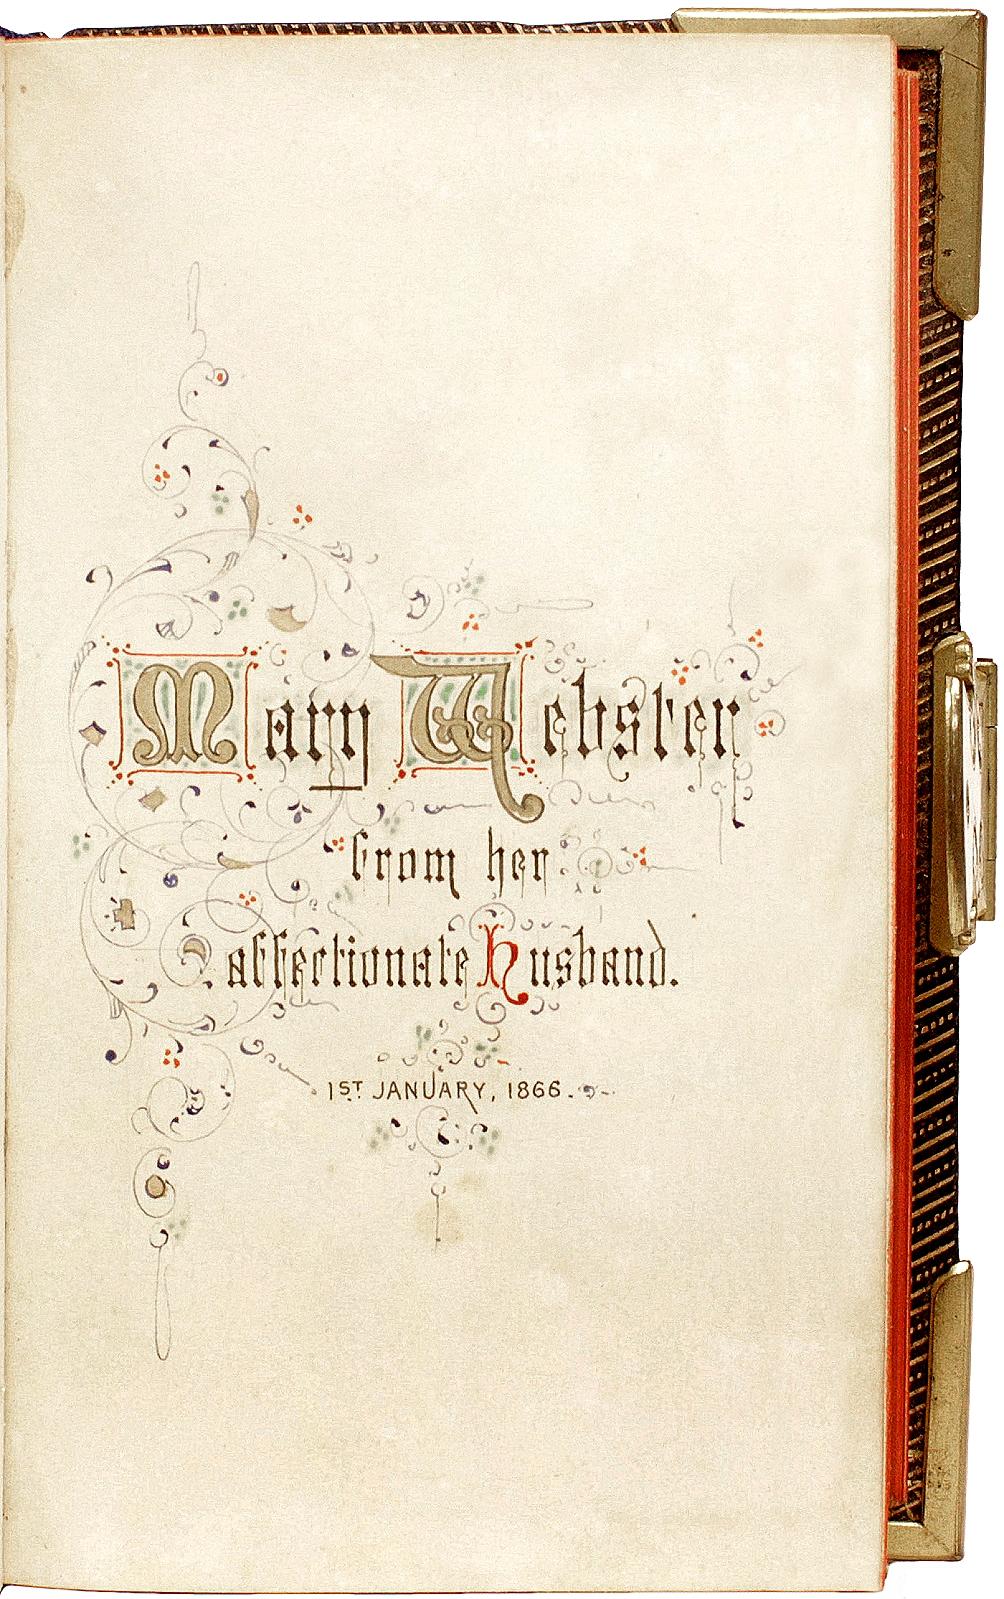 Mary Webster
from her
affectionate Husband.
1ST JANUARY, 1866.